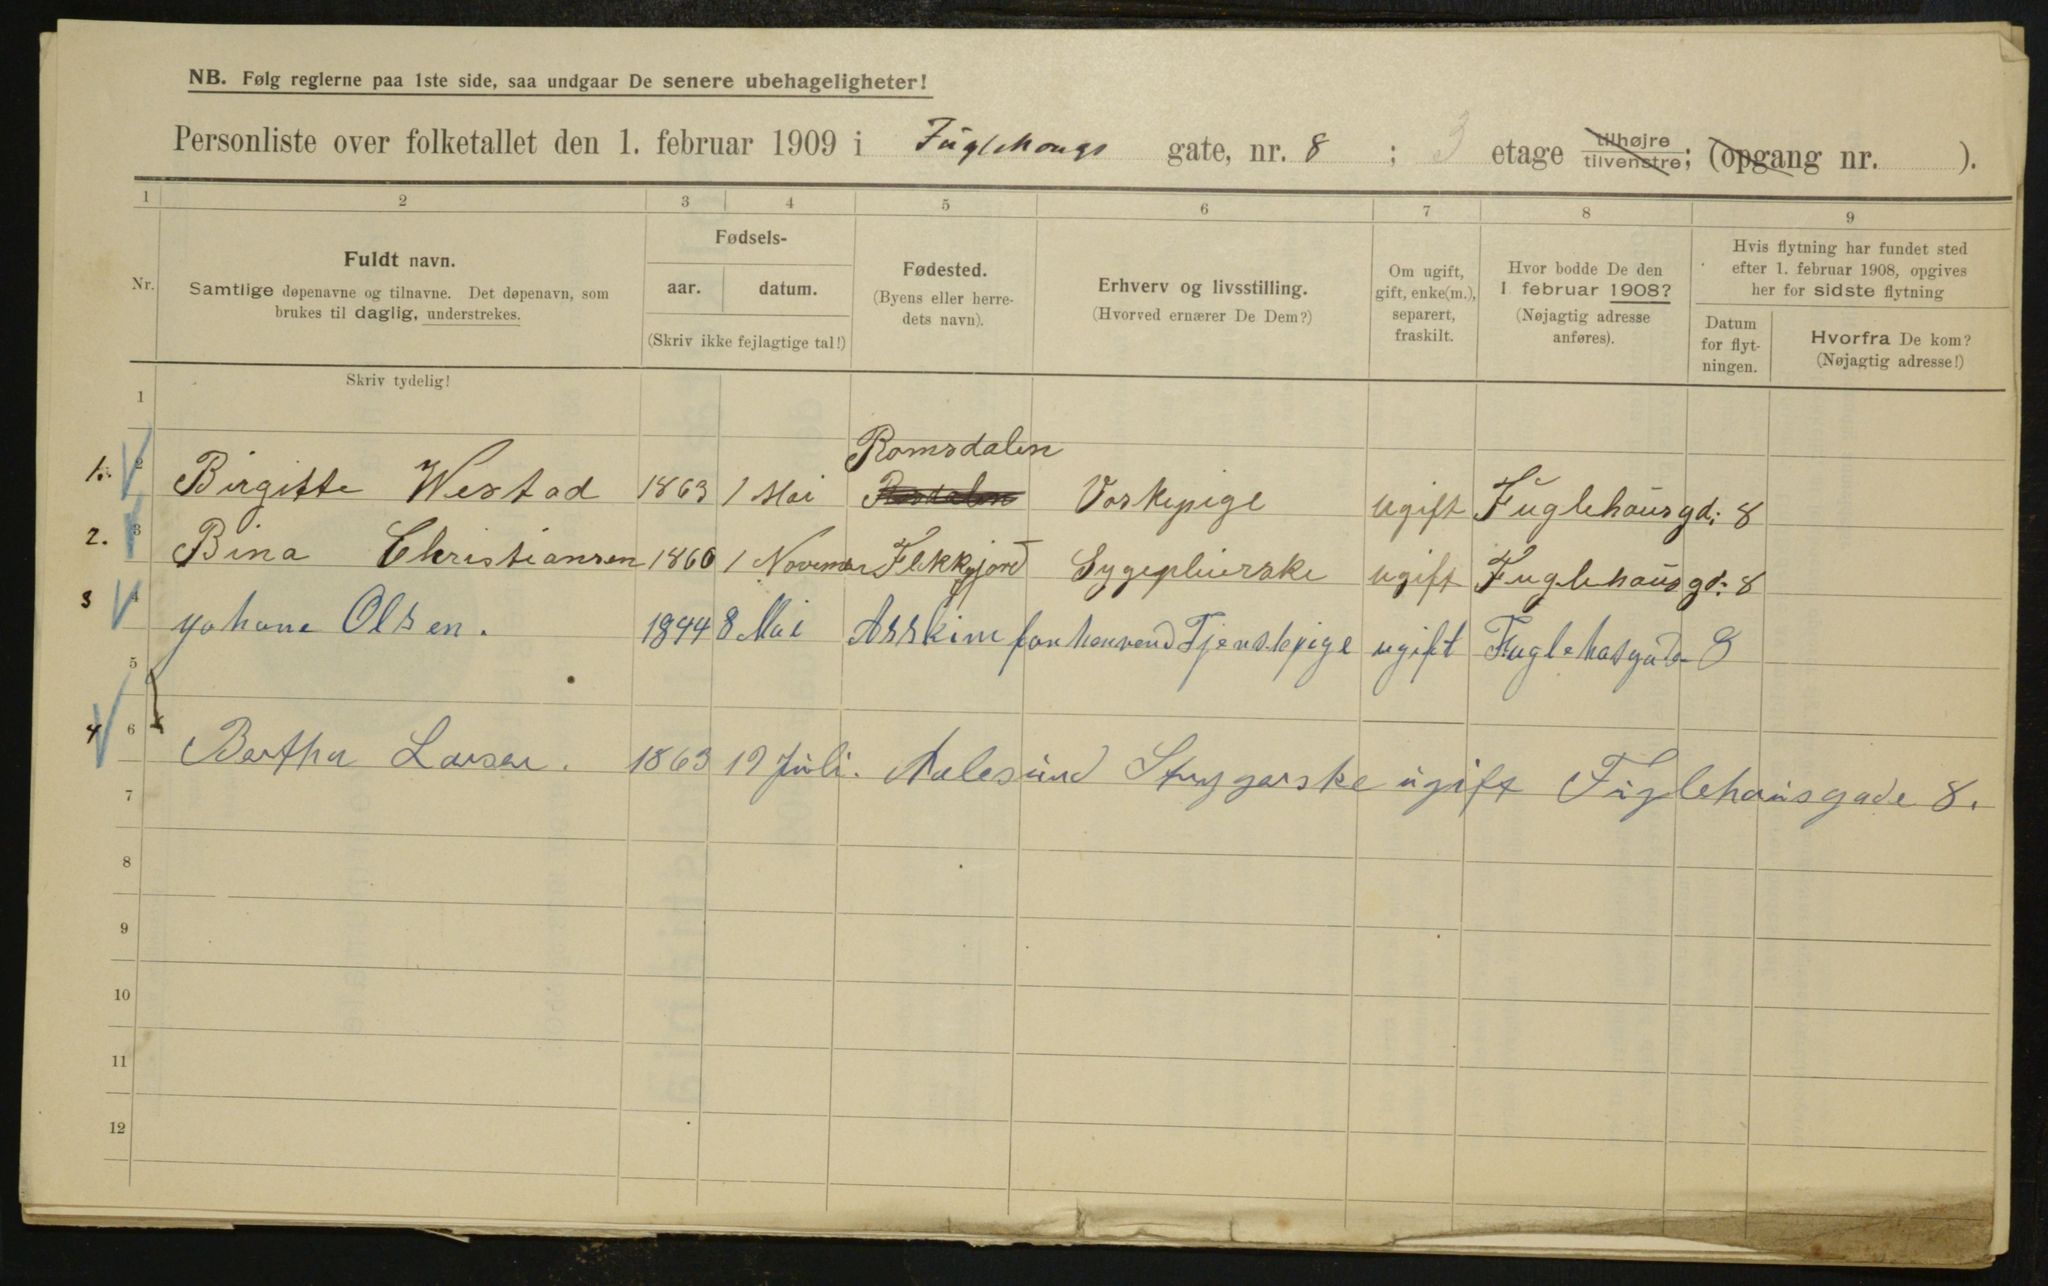 NB. Følg reglerne paa 1ste side, saa undgaar De senere ubehageligheter!
Personliste over folketallet den 1. februar 1909 i Fuglehougs gate, nr. 8 ; 3 etage tilhøjre tilvenstre; (opgang nr. ).
1 2 3 4 5 6 7 8 9
Nr.
Fuldt navn.
Samtlige døpenavne og tilnavne. Det døpenavn, som
brukes til daglig, understrekes.
Skriv tydelig!
Fødsels-
aar. datum.
(Skriv ikke fejlagtige tal!)
Fødested.
(Byens eller herre-
dets navn).
Erhverv og livsstilling.
(Hvorved ernærer De Dem?)
Om ugift,
gift, enke(m.),
separert,
fraskilt.
Hvor bodde De den
1 februar 1908?
(Nøjagtig adresse
anføres).
Hvis flytning har fundet sted
efter 1. februar 1908, opgives
her for sidste flytning
Datum
for flyt-
ningen.
Hvorfra De kom?
(Nøjagtig adresse!)
1
Romsdalen
1. 2 Birgitte Westad 1863 1 Mai Vaskepige ugift Fuglehausgd: 8
2. 3 Bina Christiansen 1860 1 November Flekkfjord Sygepleierske ugift Fuglehausgd: 8
3 4 Johane Olsen. 1844 8 Mai Asskim Tjenstepige ugift Fuglehasgade 8
5
4 6 Bertha Larsen. 1863 19 Juli. Aalesund Strygerske ugift Fuglehausgade 8.
7
8
9
10
11
12